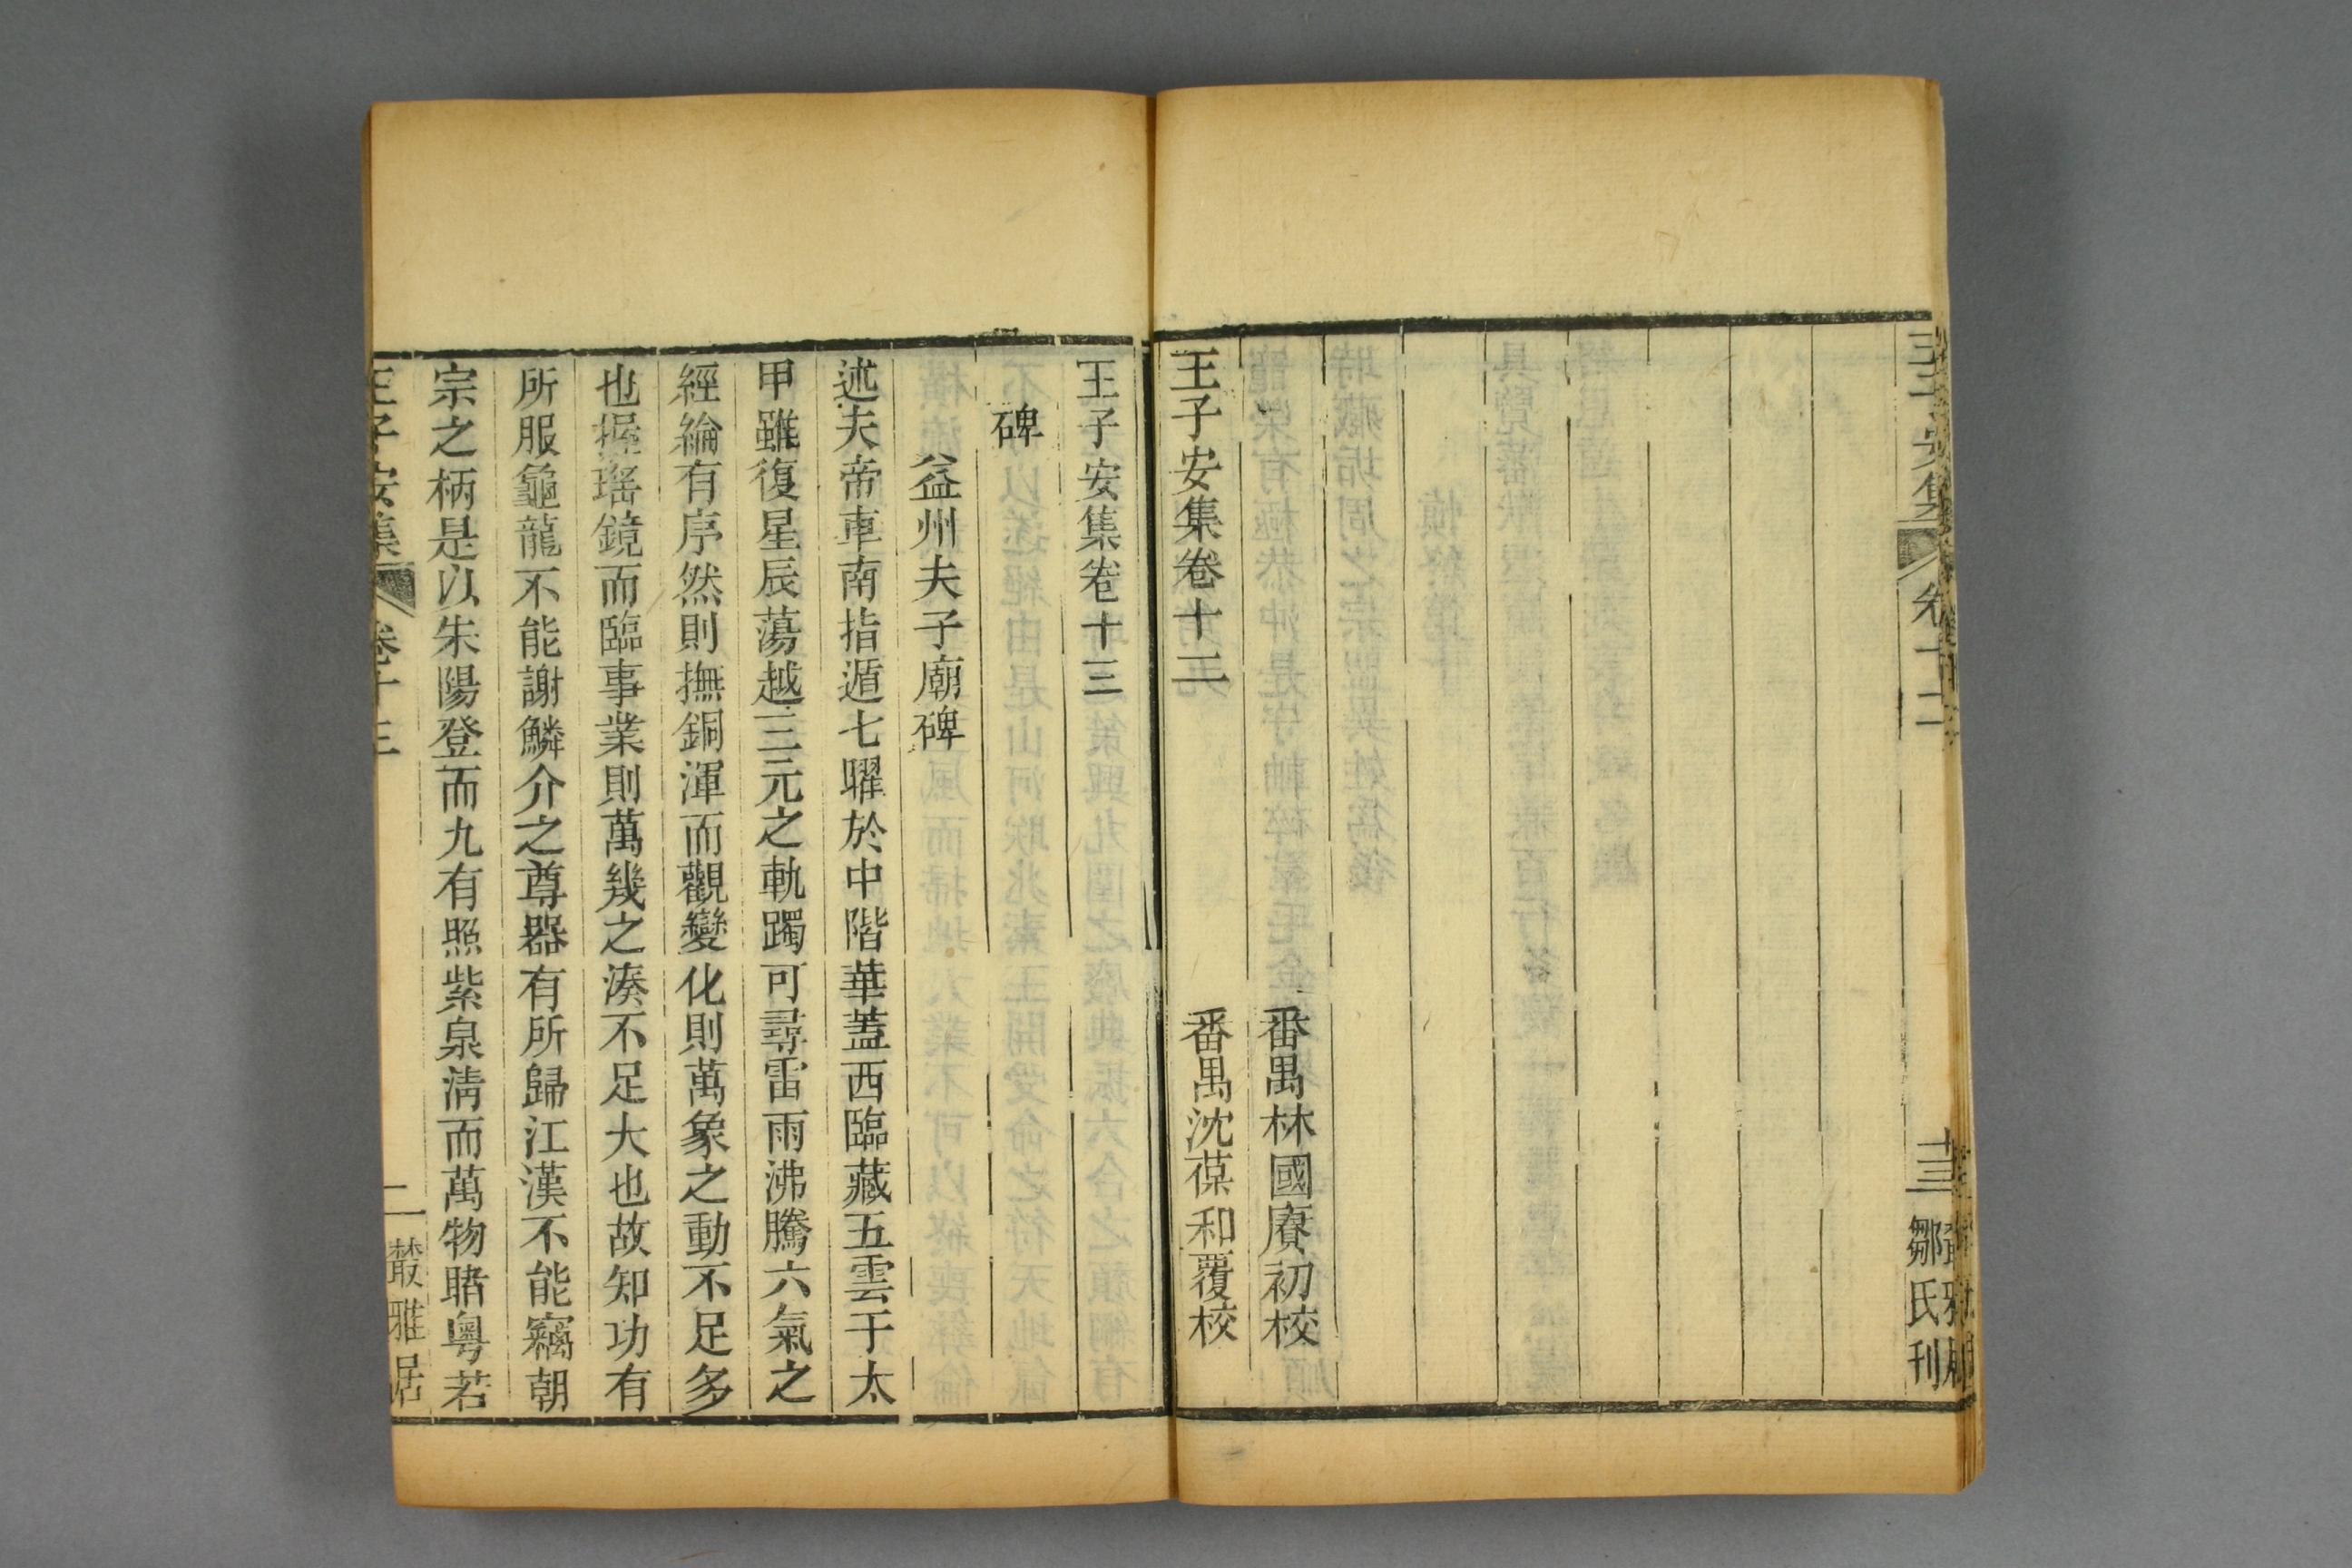 王子安集
卷十二
十三
鄒氏刊
番禺林國賡初校
王子安集卷十二
番禺沈葆和覆校
王子安集卷十三
碑
益州夫子廟碑
述夫帝車南指遁七曜於中階華蓋西臨藏五雲于太
甲雖復星辰蕩越三元之軌躅可尋雷雨沸騰六氣之
經綸有序然則撫銅渾而觀變化則萬象之動不足多
也握瑤鏡而臨事業則萬幾之湊不足大也故知功有
所服龜龍不能謝鱗介之尊器有所歸江漢不能竊朝
宗之柄是以朱陽登而九有照紫泉淸而萬物睹粵若
王子安集
卷十三
一
叢雅居